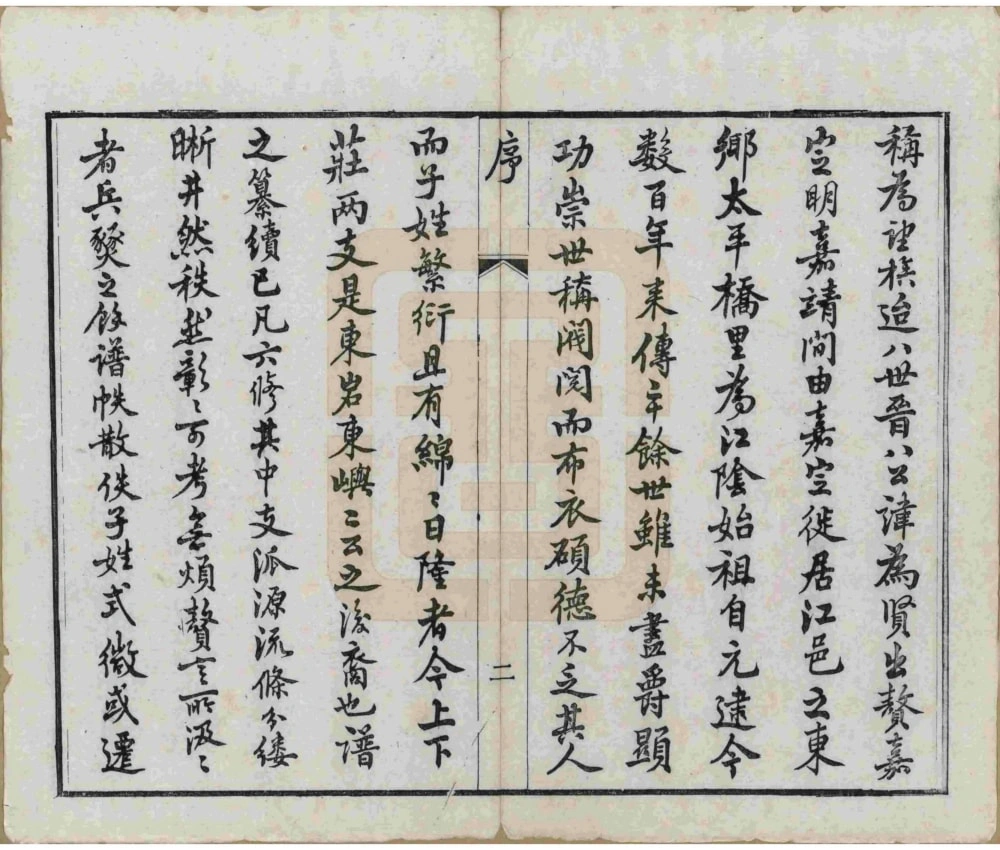 稱為望樵迨八世晉八公諱為賢出贅嘉
定明嘉靖間由嘉定徙居江邑之東
鄉太平橋里為江陰始祖自元逮今
數百年來傳二十餘世雖未盡爵顯
功崇世稱閥閱而布衣碩德不乏其人
序
二
而子姓繁衍且有綿〻日隆者今上下
莊两支是東岩東嶼二公之後裔也譜
之纂續已凡六修其中支派源流條分縷
晰井然秩然彰〻可考無煩贅言所汲〻
者兵燹之餘譜帙散佚子姓式微或遷